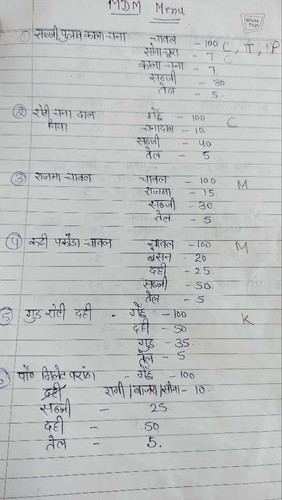 MDM Menu
① सब्जी पुलाव काला चना चावल - 100 C, T, P
सोया चूरा - 7 C
काला चना - 7
सब्जी - 30
तेल - 5
② रोटी चना दाल गेहूँ - 100 C
घिया चनादाल - 10
सब्जी - 40
तेल - 5
③ राजमा चावल चावल - 100 M
राजमा - 15
सब्जी - 30
तेल - 5
④ कढी पकौडा चावल चावल - 100 M
बेसन - 20
दही - 25
सब्जी - 50
तेल - 5
⑤ गुड रोटी दही - गेहूँ - 100 K
दही - 50
गुड - 35
तेल - 5
पौ० मिलेट परांठा - गेहूँ - 100
दही रागी/बाजरा/सोया - 10
सब्जी - 25
दही - 50
तेल - 5.